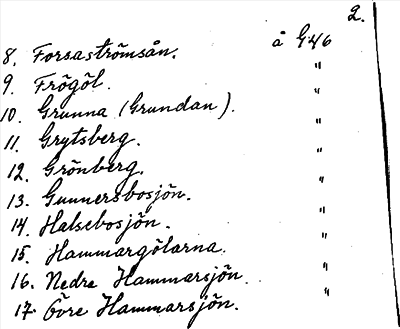 2.
8. Forsaströmsån. å G46
9. Frögöl. "
10. Grunna (Grundan). "
11. Grytsberg. "
12. Grönberg. "
13. Gunnersbosjön. "
14. Halsebosjön. "
15. Hammargölarna. "
16. Nedre Hammarsjön "
17. Övre Hammarsjön. "